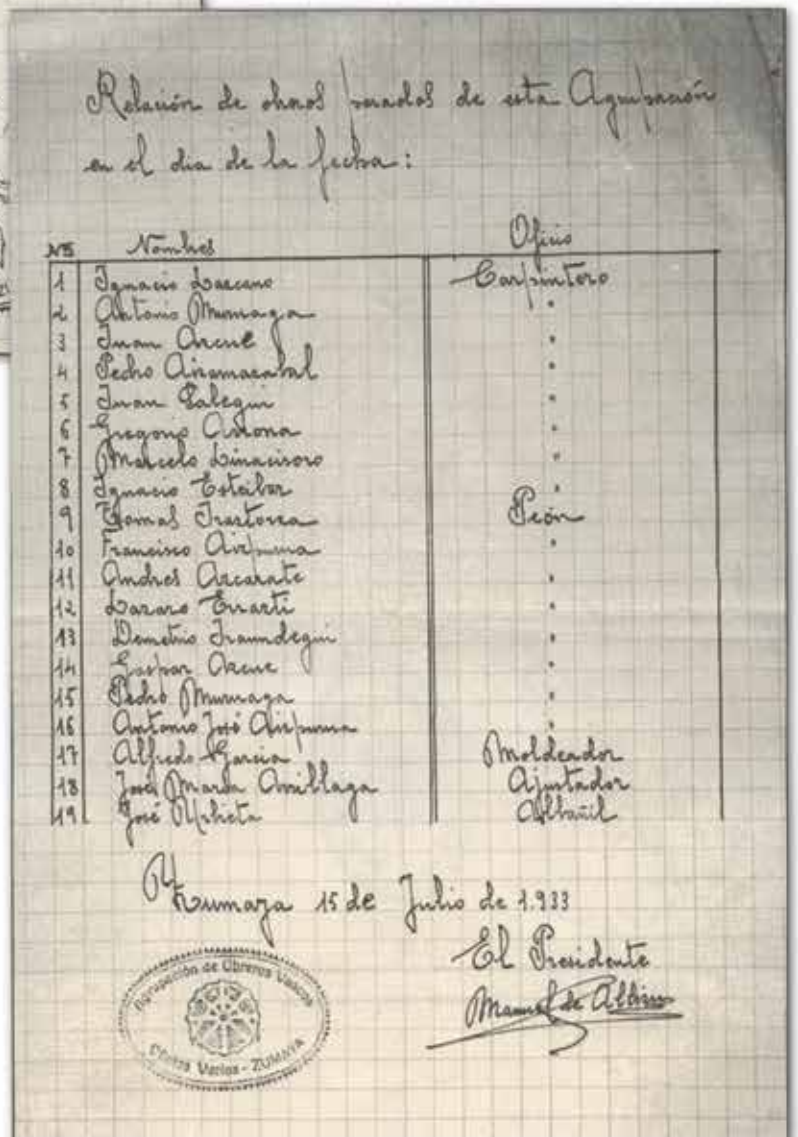 Relación de obreros parados de esta Agrupación
en el dia de la fecha:
Nº Nombres Oficio
1 Ignacio Lascano Carpintero
2 Antonio Muruaga "
3 Juan Arcue "
4 Pedro "
5 Juan "
6 Gregorio "
7 Marcelo Linacisoro "
8 Ignacio Esteibar "
9 Tomas Irastorza Peón
10 Francisco Aizpurua "
11 Andres Azcarate "
12 Lazaro Errasti "
13 Demetrio Iraundegui "
14 Gaspar Arcue "
15 Pedro Muruaga "
16 Antonio José Aizpurua "
17 Alfredo Garcia Moldeador
18 José Maria Arrillaga Ajustador
19 José Urbieta Albañil
Zumaya 15 de Julio de 1.933
El Presidente
Manuel de
Agrupación de Obreros Vascos
Oficios Varios - ZUMAYA